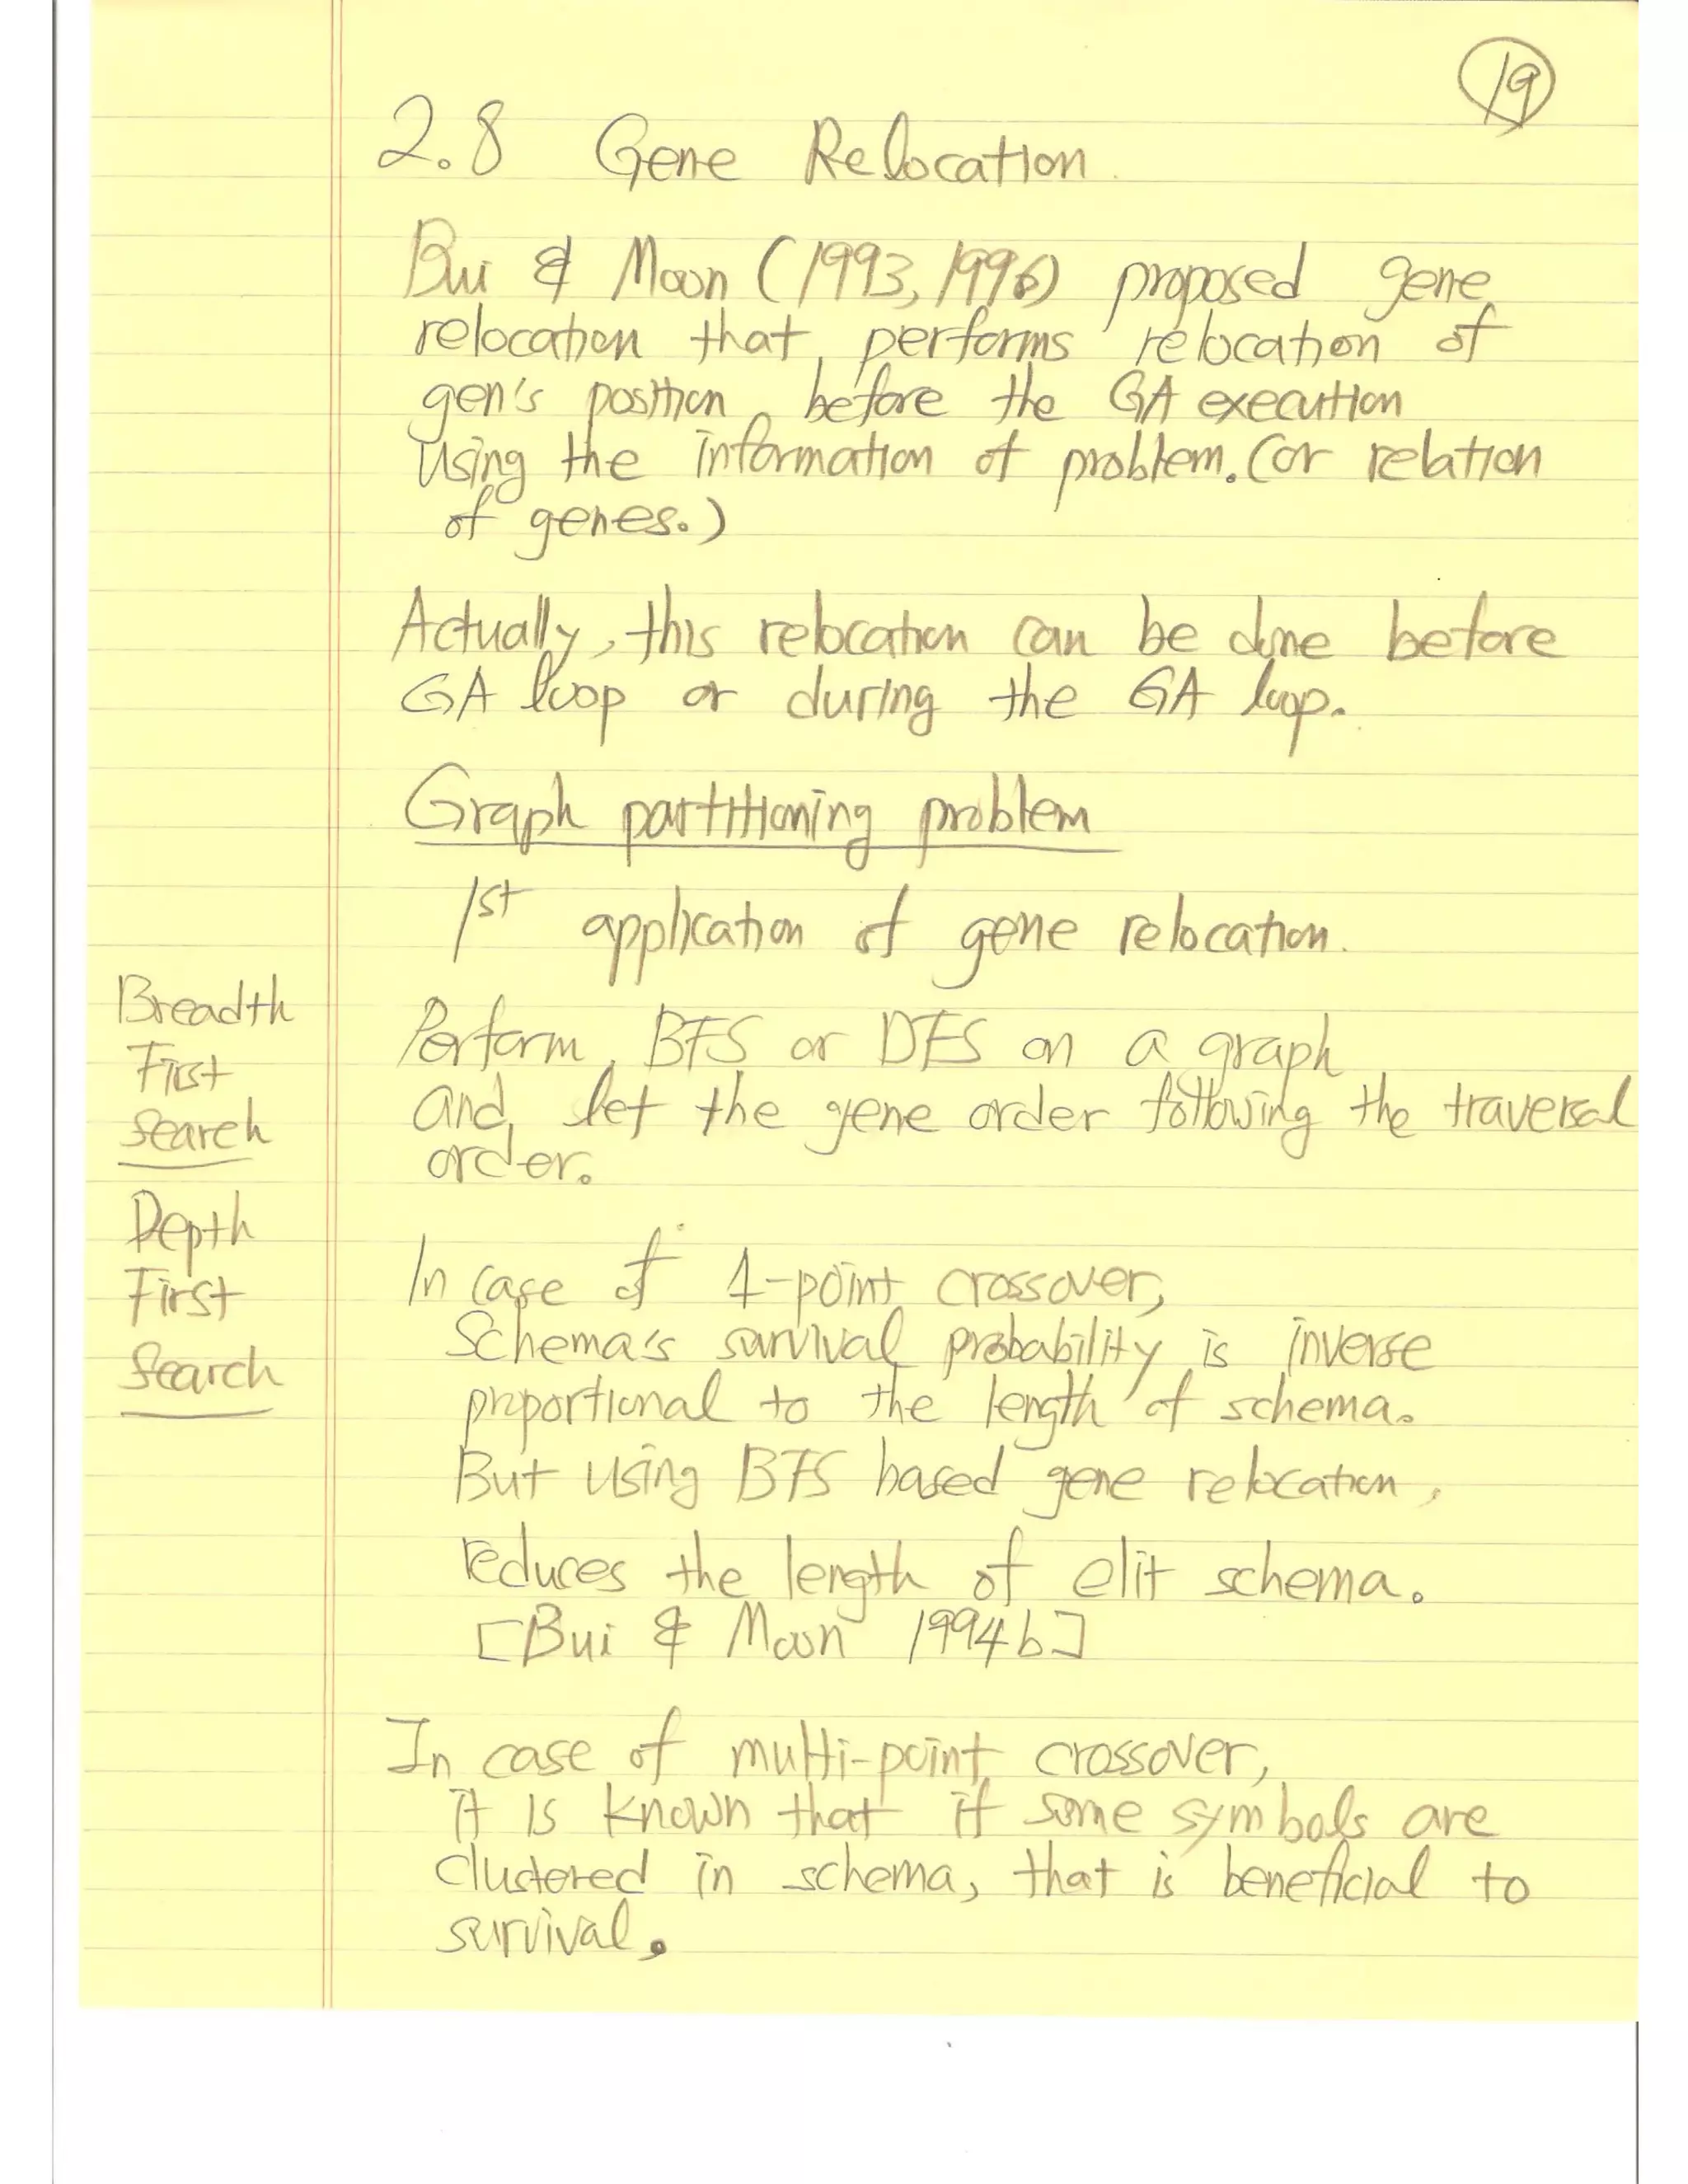 19
2.8 Gene Relocation.
Bui & Moon (1993, 1996) proposed gene
relocation that performs relocation of
gen's position before the GA execution
using the information of problem. (or relation
of genes.)
Actually, this relocation can be done before
GA loop or during the GA loop.
Graph partitioning problem
1st application of gene relocation.
Breadth
First
Search
Depth
First
Search
Perform BFS or DFS on a graph
and let the gene order following the traversal
order.
In case of 1-point crossover,
Schema's survival probability is inverse
proportional to the length of schema.
But using BFS based gene relocation,
reduces the length of elit schema.
[Bui & Moon 1994b]
In case of multi-point crossover,
it is known that if some symbols are
clustered in schema, that is beneficial to
survival.